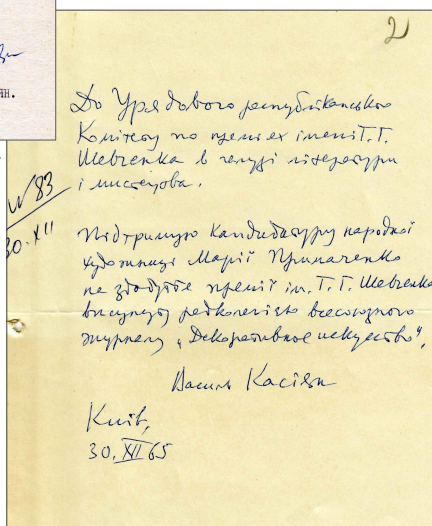 2
ян.
До Урядового республіканського
Комітету по преміях імені Т. Г.
Шевченка в галузі літератури
і мистецтва.
№ 83
30.XII
Підтримую кандидатуру народної
художниці Марії Приймаченко
на здобуття премії ім. Т. Г. Шевченка
висунуту редколегією всесоюзного
журналу „Декоративное искусство“.
Василь Касіян
Київ,
30.XII 65